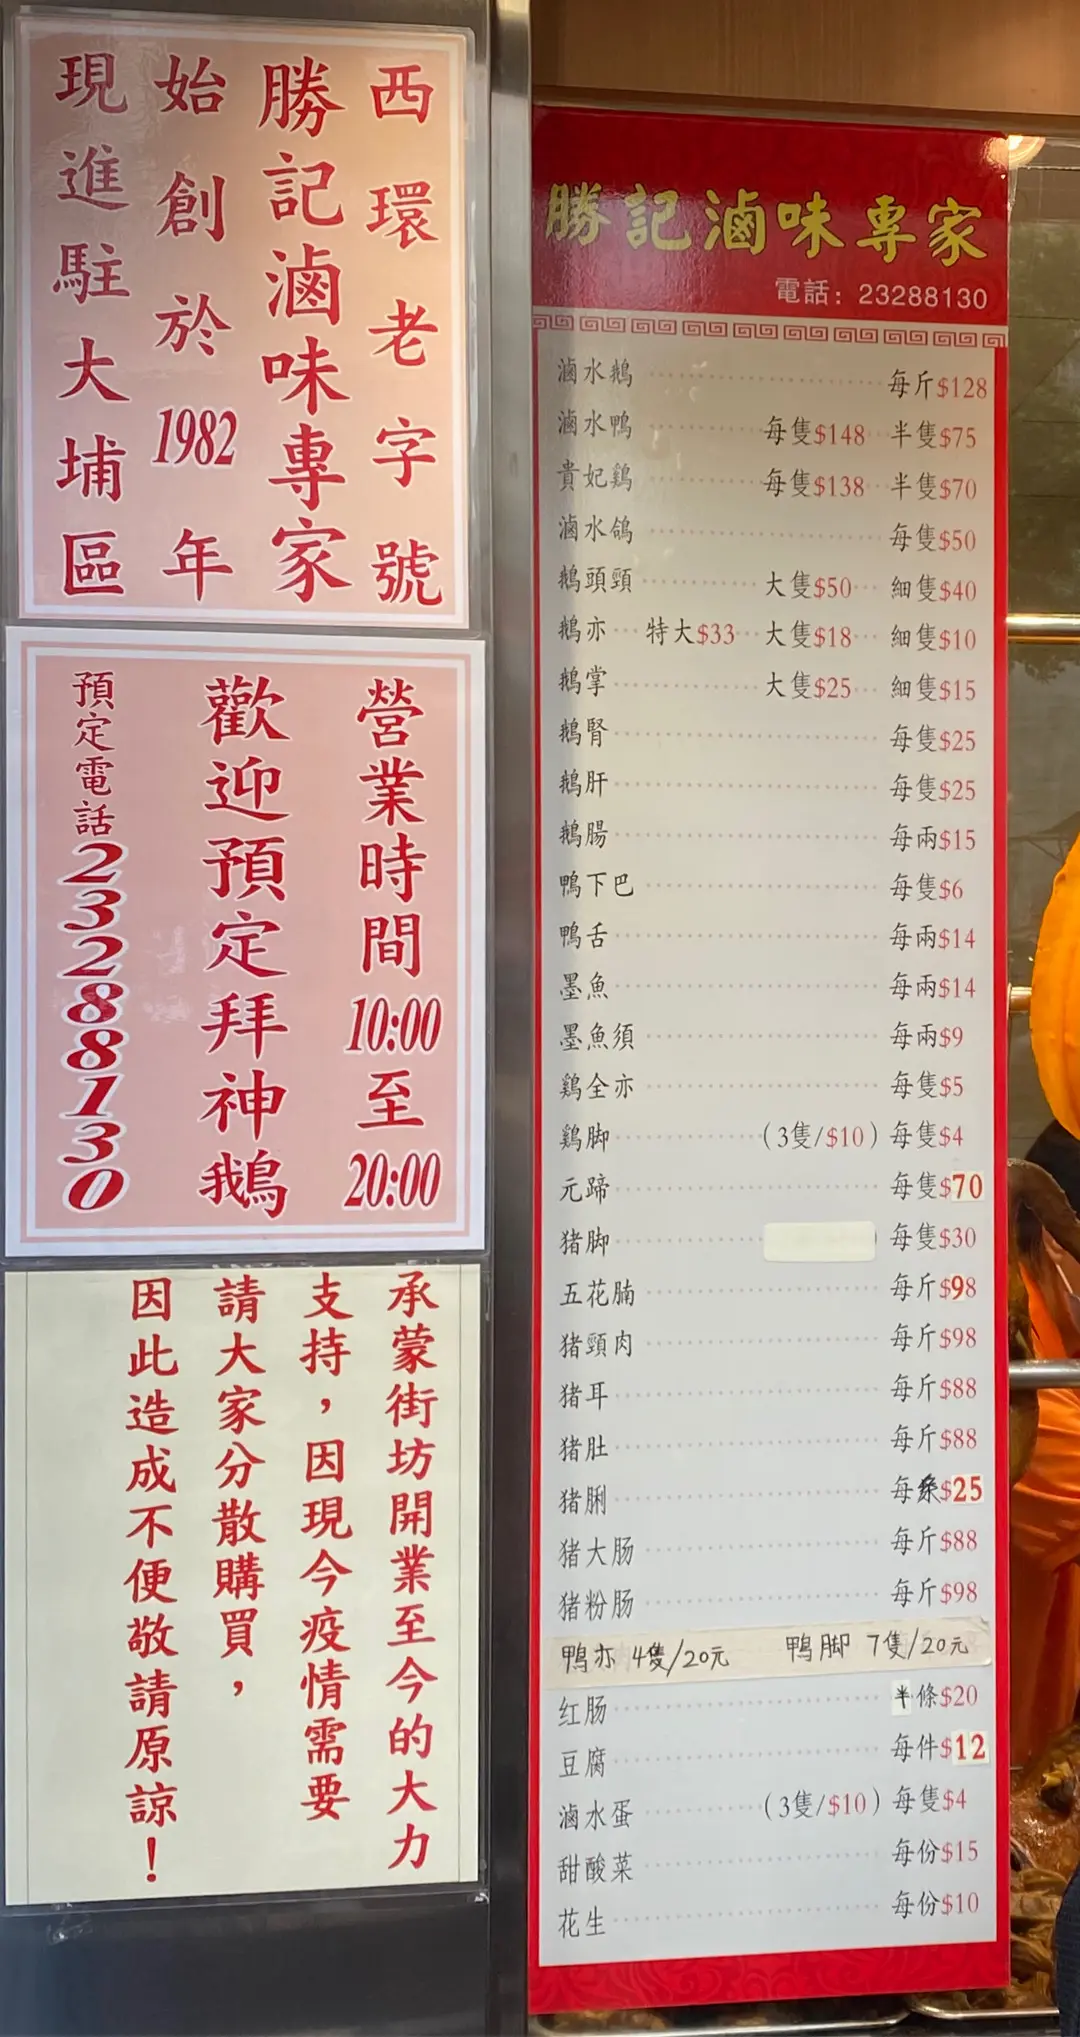 西環老字號
勝記滷味專家
始創於1982年
現進駐大埔區
營業時間10:00至20:00
歡迎預定拜神鵝
預定電話23288130
承蒙街坊開業至今的大力
支持，因現今疫情需要
請大家分散購買，
因此造成不便敬請原諒！
勝記滷味專家
電話：23288130
滷水鵝 每斤$128
滷水鴨 每隻$148 半隻$75
貴妃鷄 每隻$138 半隻$70
滷水鴿 每隻$50
鵝頭頸 大隻$50 細隻$40
鵝亦 特大$33 大隻$18 細隻$10
鵝掌 大隻$25 細隻$15
鵝腎 每隻$25
鵝肝 每隻$25
鵝腸 每兩$15
鴨下巴 每隻$6
鴨舌 每兩$14
墨魚 每兩$14
墨魚須 每兩$9
鷄全亦 每隻$5
鷄脚 (3隻/$10) 每隻$4
元蹄 每隻$70
猪脚 ) 每隻$30
五花腩 每斤$98
猪頸肉 每斤$98
猪耳 每斤$88
猪肚 每斤$88
猪脷 每条$25
猪大肠 每斤$88
猪粉肠 每斤$98
鴨亦 4隻/20元 鴨脚 7隻/20元
红肠 半條$20
豆腐 每件$12
滷水蛋 (3隻/$10) 每隻$4
甜酸菜 每份$15
花生 每份$10